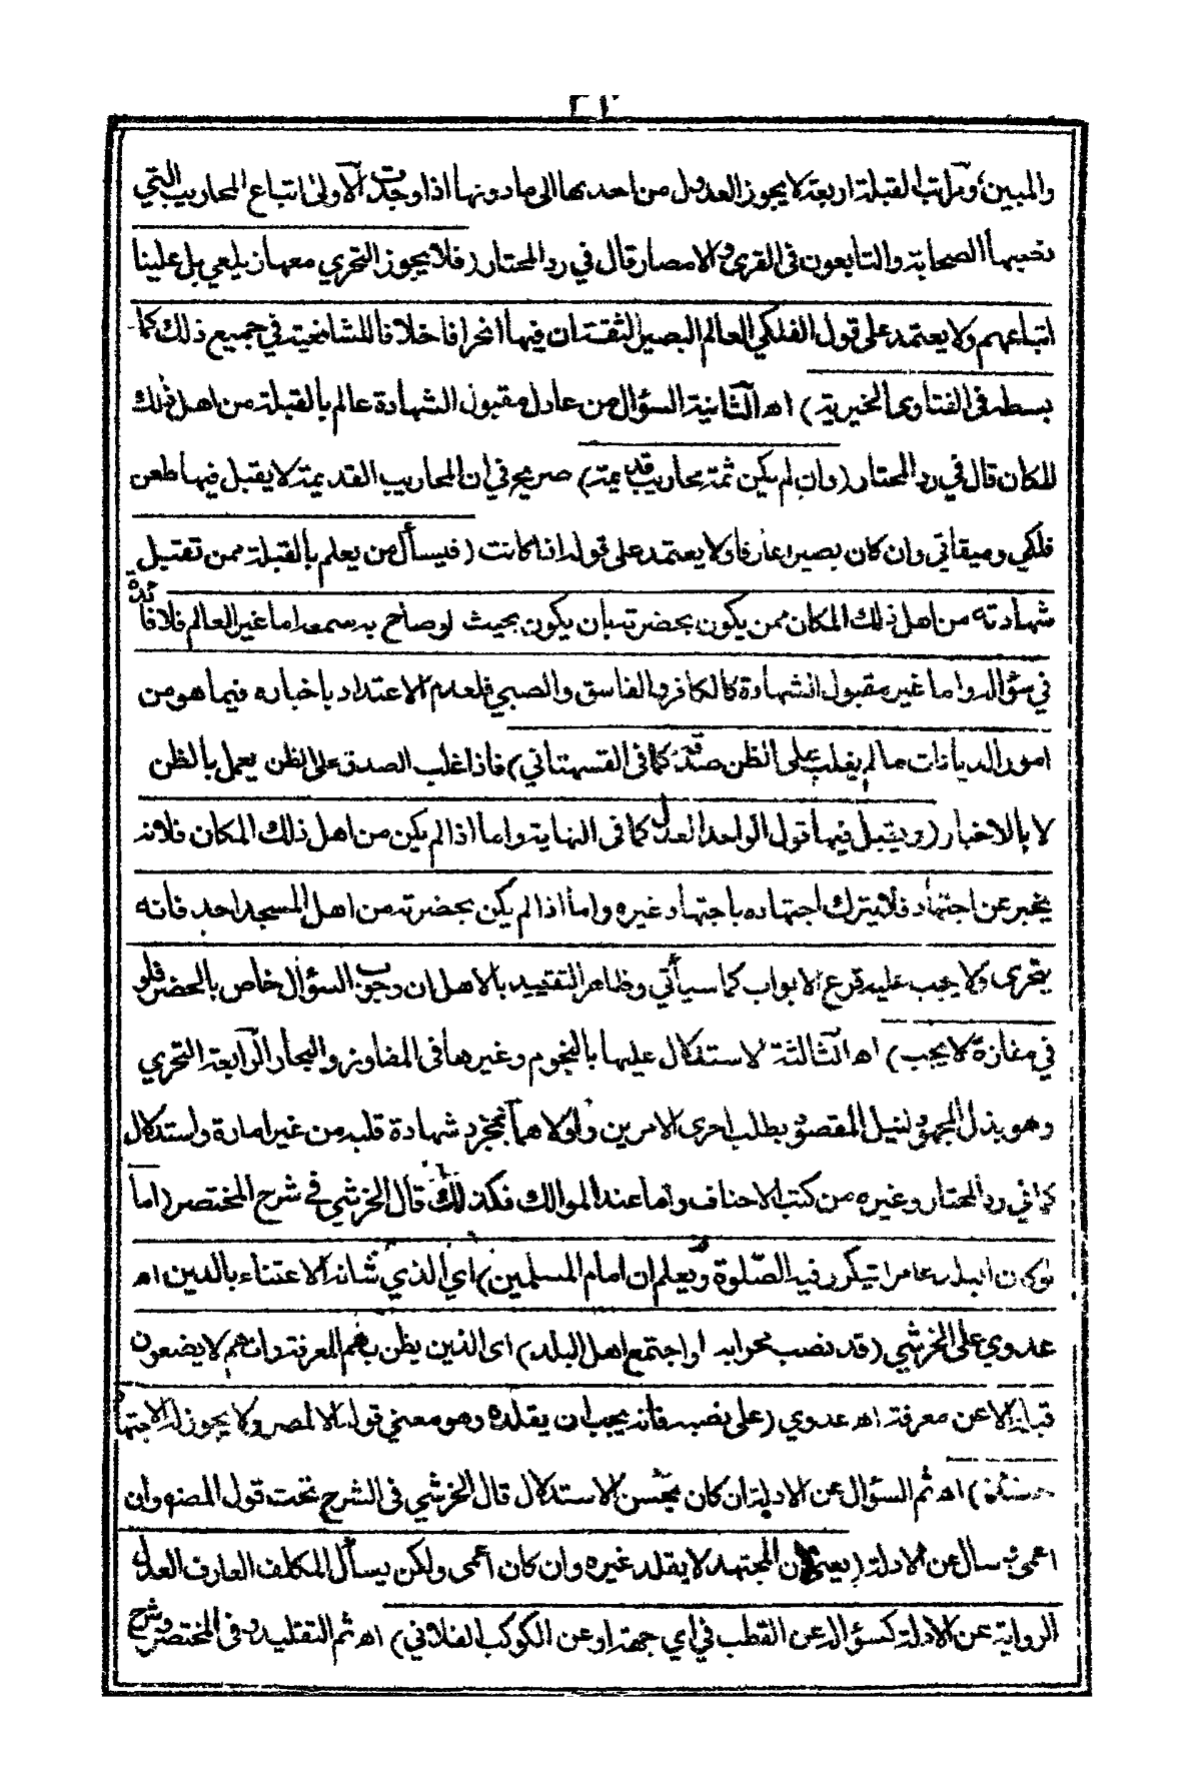 والمبين، ومراتب القبلة اربعة لا يجوز العدول من احدىها الى ما دونها اذا وجدت الاولى اتباع المحاريب التي
نصبها الصحابة والتابعون فى القرى والامصار قال في رد المحتار (فلا يجوز التحري معها زيلعي بل علينا
اتباعهم ولا يعتمد على قول الفلكي العالم البصير الثقة ان فيها انحرافا خلافا للشافعية في جميع ذلك كما
بسطه فى الفتاوى الخيرية) اه الثانية السؤال من عادل مقبول الشهادة عالم بالقبلة من اهل ذلك
المكان قال في رد المحتار (وان لم يكن ثمة محاريب قديمة) صريح في ان المحاريب القديمة لا يقبل فيها طعن
فلكي وميقاتي وان كان بصيرا عارفا ولا يعتمد على قوله اذا كانت (فيسأل من يعلم بالقبلة ممن تقبل
شهادته من اهل ذلك المكان ممن يكون بحضرته بان يكون بحيث لو صاح به سمعه اما غير العالم فلا فائدة
في سؤاله واما غير مقبول الشهادة كالكافر والفاسق والصبي فلعدم الاعتداد باخباره فيما هو من
امور الديانات ما لم يغلب على الظن صدقه كما فى القهستاني) فاذا غلب الصدق على الظن يعمل بالظن
لا بالاخبار (ويقبل فيها قول الواحد العدل كما فى النهاية واما اذا لم يكن من اهل ذلك المكان فلانه
يخبر عن اجتهاد فلا يترك اجتهاده باجتهاد غيره واما اذا لم يكن بحضرته من اهل المسجد احد فانه
يتحرى ولا يجب عليه قرع الابواب كما سيأتي وظاهر التقييد بالاهل ان وجوب السؤال خاص بالحضر فلو
في مفازة لا يجب) اه الثالثة الاستدلال عليها بالنجوم وغيرها فى المفاوز والبحار الرابعة التحري
وهو بذل المجهود لنيل المقصود بطلب احرى الامرين واولاهما بمجرد شهادة قلبه من غير امارة واستدلال
كما في رد المحتار وغيره من كتب الاحناف واما عند الموالك فكذلك قال الخرشي في شرح المختصر (اما
لو كان البلد عامرا تتكرر فيه الصلوة ويعلم ان امام المسلمين) اي الذي شانه الاعتناء بالدين اه
عدوي على الخرشي (قد نصب محرابه او اجتمع اهل البلد) اى الذين يظن بهم المعرفة وانهم لا يضعون
قبلة الا عن معرفة اه عدوي (على نصبه فانه يجب ان يقلده وهو معنى قوله الا لمصر ولا يجوز له الاجتهاد
حينئذ) اه ثم السؤال عن الادلة ان كان يحسن الاستدلال قال الخرشي فى الشرح تحت قول المصنف وان
اعمى وسال عن الادلة (يعني ان المجتهد لا يقلد غيره وان كان اعمى ولكن يسأل المكلف العارف العدل
الرواية عن الادلة كسؤاله عن القطب في اي جهة او عن الكوكب الفلاني) اه ثم التقليد وفى المختصر وشرح